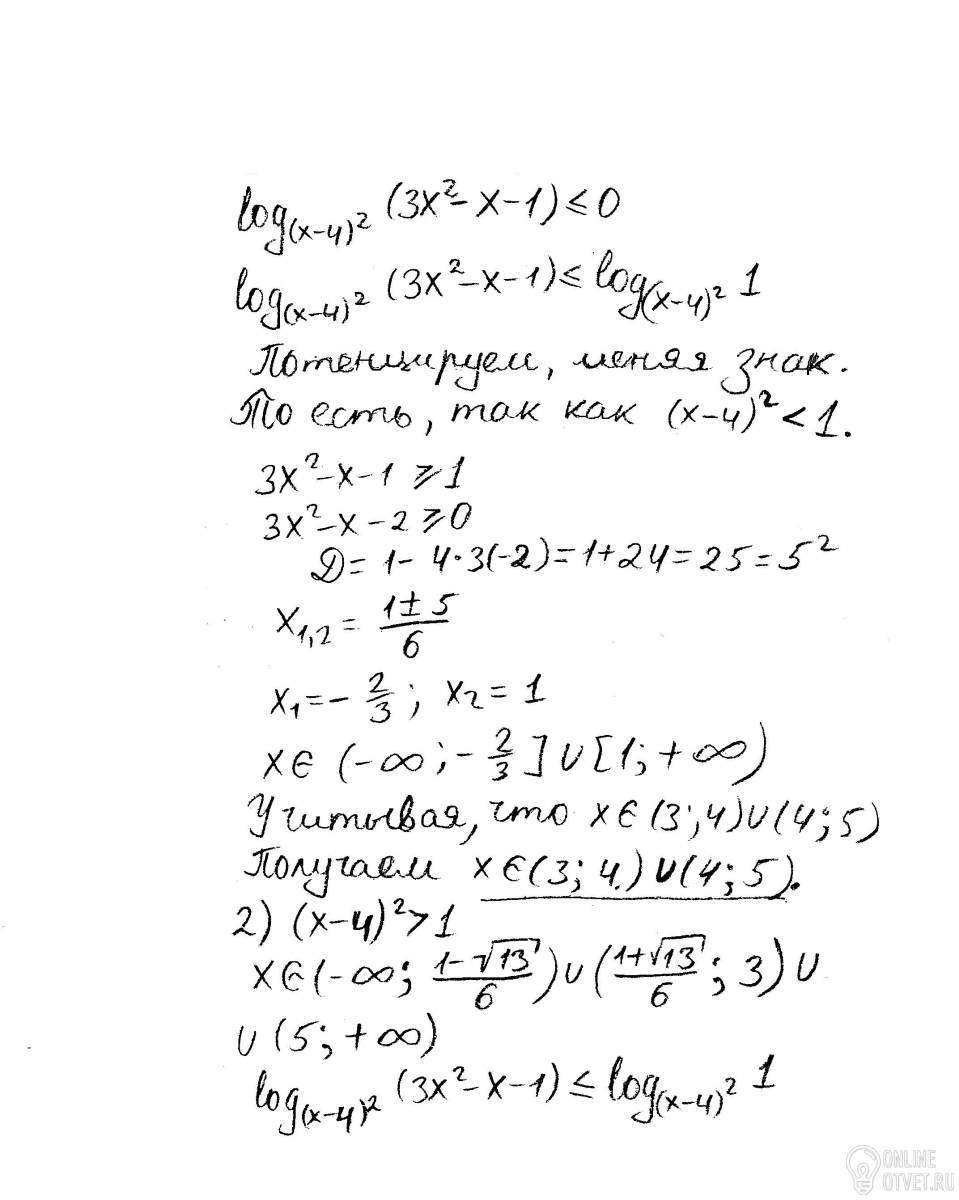 log_(x-4)² (3x²-x-1) ≤ 0
log_(x-4)² (3x²-x-1) ≤ log_(x-4)² 1
Потенцируем, меняя знак.
То есть, так как (x-4)² < 1.
3x²-x-1 ≥ 1
3x²-x-2 ≥ 0
D = 1 - 4·3(-2) = 1+24 = 25 = 5²
x₁,₂ = (1±5)/6
x₁ = -2/3; x₂ = 1
x ∈ (-∞; -2/3] ∪ [1; +∞)
Учитывая, что x ∈ (3; 4) ∪ (4; 5)
Получаем x ∈ (3; 4) ∪ (4; 5).
2) (x-4)² > 1
x ∈ (-∞; (1-√13)/6) ∪ ((1+√13)/6; 3) ∪
∪ (5; +∞)
log_(x-4)² (3x²-x-1) ≤ log_(x-4)² 1
ONLINE
OTVET.RU